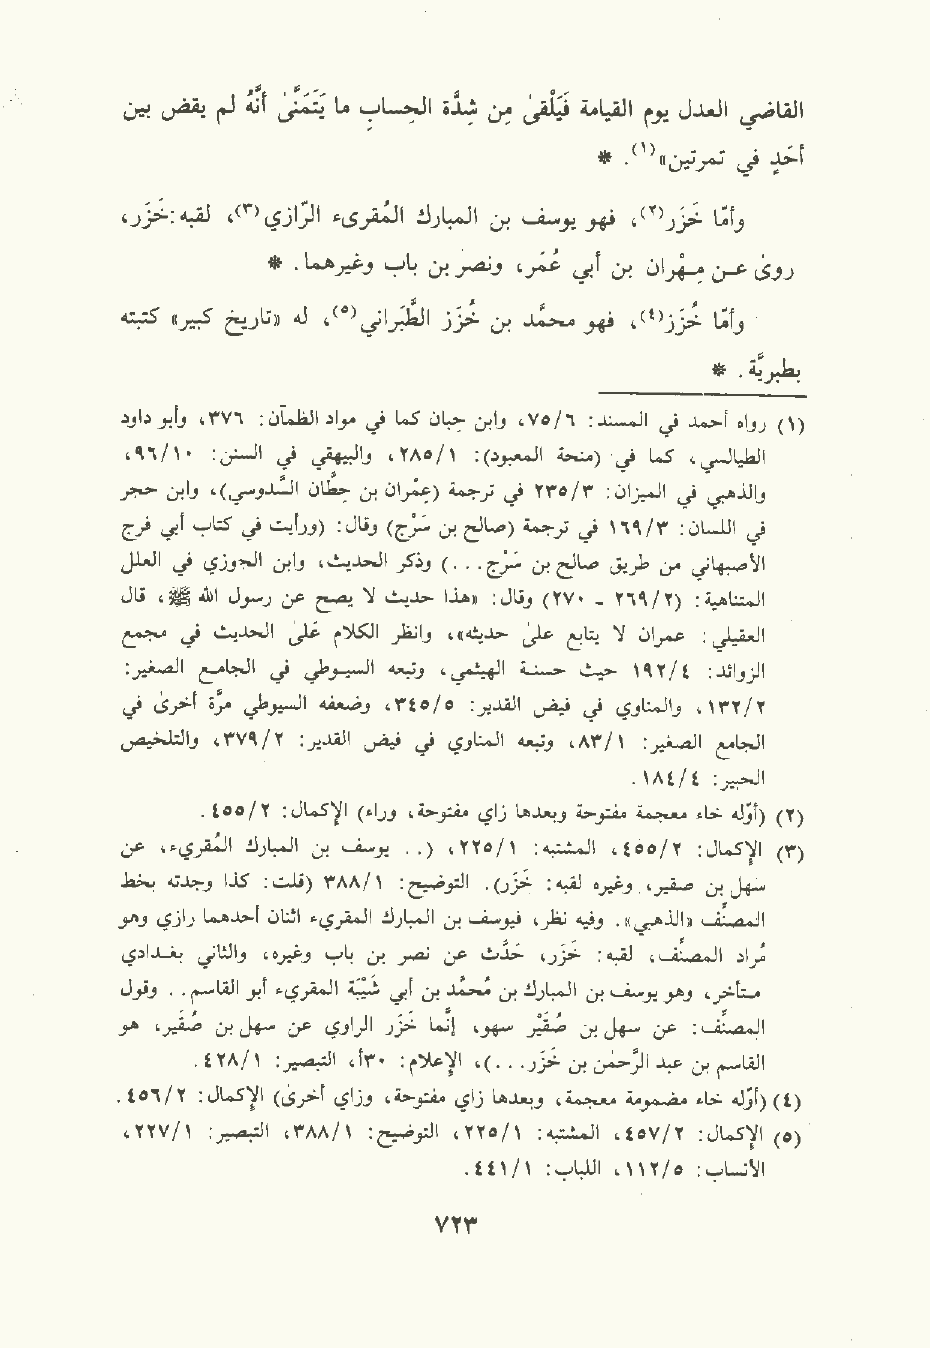 القاضي العدل يوم القيامة فيَلْقىٰ مِن شِدّة الحِساب ما يَتَمَنّىٰ أنَّه لم يقض بين
أحَدٍ في تمرتين»(١). *
وأمّا خَزَر(٢)، فهو يوسف بن المبارك المُقرىء الرّازي(٣)، لقبه: خَزَر،
روىٰ عـن مِـهْران بن أبي عُمَر، ونصر بن باب وغيرهما. *
وأمّا خُزَز(٤)، فهو محمّد بن خُزَز الطَّبَراني(٥)، له «تاريخ كبير» كتبته
بطبريّة. *
(١) رواه أحمد في المسند: ٧٥/٦، وابن حبان كما في موارد الظمآن: ٣٧٦، وأبو داود
الطيالسي، كما في (منحة المعبود): ٢٨٥/١، والبيهقي في السنن: ٩٦/١٠،
والذهبي في الميزان: ٢٣٥/٣ في ترجمة (عِمْران بن حِطّان السَّدوسي)، وابن حجر
في اللسان: ١٦٩/٣ في ترجمة (صالح بن سَرْج) وقال: (ورأيت في كتاب أبي فرج
الأصبهاني من طريق صالح بن سَرْج...) وذكر الحديث، وابن الجوزي في العلل
المتناهية: (٢٦٩/٢ - ٢٧٠) وقال: «هذا حديث لا يصح عن رسول الله ﷺ، قال
العقيلي: عمران لا يتابع علىٰ حديثه»، وانظر الكلام علىٰ الحديث في مجمع
الزوائد: ١٩٢/٤ حيث حسنه الهيثمي، وتبعه السيوطي في الجامع الصغير:
١٣٢/٢، والمناوي في فيض القدير: ٣٤٥/٥، وضعفه السيوطي مرّة أخرىٰ في
الجامع الصغير: ٨٣/١، وتبعه المناوي في فيض القدير: ٣٧٩/٢، والتلخيص
الحبير: ١٨٤/٤.
(٢) (أوّله خاء معجمة مفتوحة وبعدها زاي مفتوحة، وراء) الإكمال: ٤٥٥/٢.
(٣) الإكمال: ٤٥٥/٢، المشتبه: ٢٢٥/١، (.. يوسف بن المبارك المُقرىء، عن
سهل بن صقير، وغيره لقبه: خَزَر). التوضيح: ٣٨٨/١ (قلت: كذا وجدته بخط
المصنِّف «الذهبي». وفيه نظر، فيوسف بن المبارك المقرىء اثنان أحدهما رازي وهو
مُراد المصنِّف، لقبه: خَزَر، حَدّث عن نصر بن باب وغيره، والثاني بغـدادي
متأخر، وهو يوسف بن المبارك بن محُمّد بن أبي شَيْبَة المقرىء أبو القاسم.. وقول
المصنِّف: عن سهل بن صُقَيْر سهو، إنّما خَزَر الرازي عن سهل بن صُقَير، هو
القاسم بن عبد الرَّحمٰن بن خَزَر...)، الإعلام: ٣٠أ، التبصير: ٤٢٨/١.
(٤) (أوّله خاء مضمومة معجمة، وبعدها زاي مفتوحة، وزاي أخرىٰ) الإكمال: ٤٥٦/٢.
(٥) الإكمال: ٤٥٧/٢، المشتبه: ٢٢٥/١، التوضيح: ٣٨٨/١، التبصير: ٢٢٧/١،
الأنساب: ١١٢/٥، اللباب: ٤٤١/١.
٧٢٣